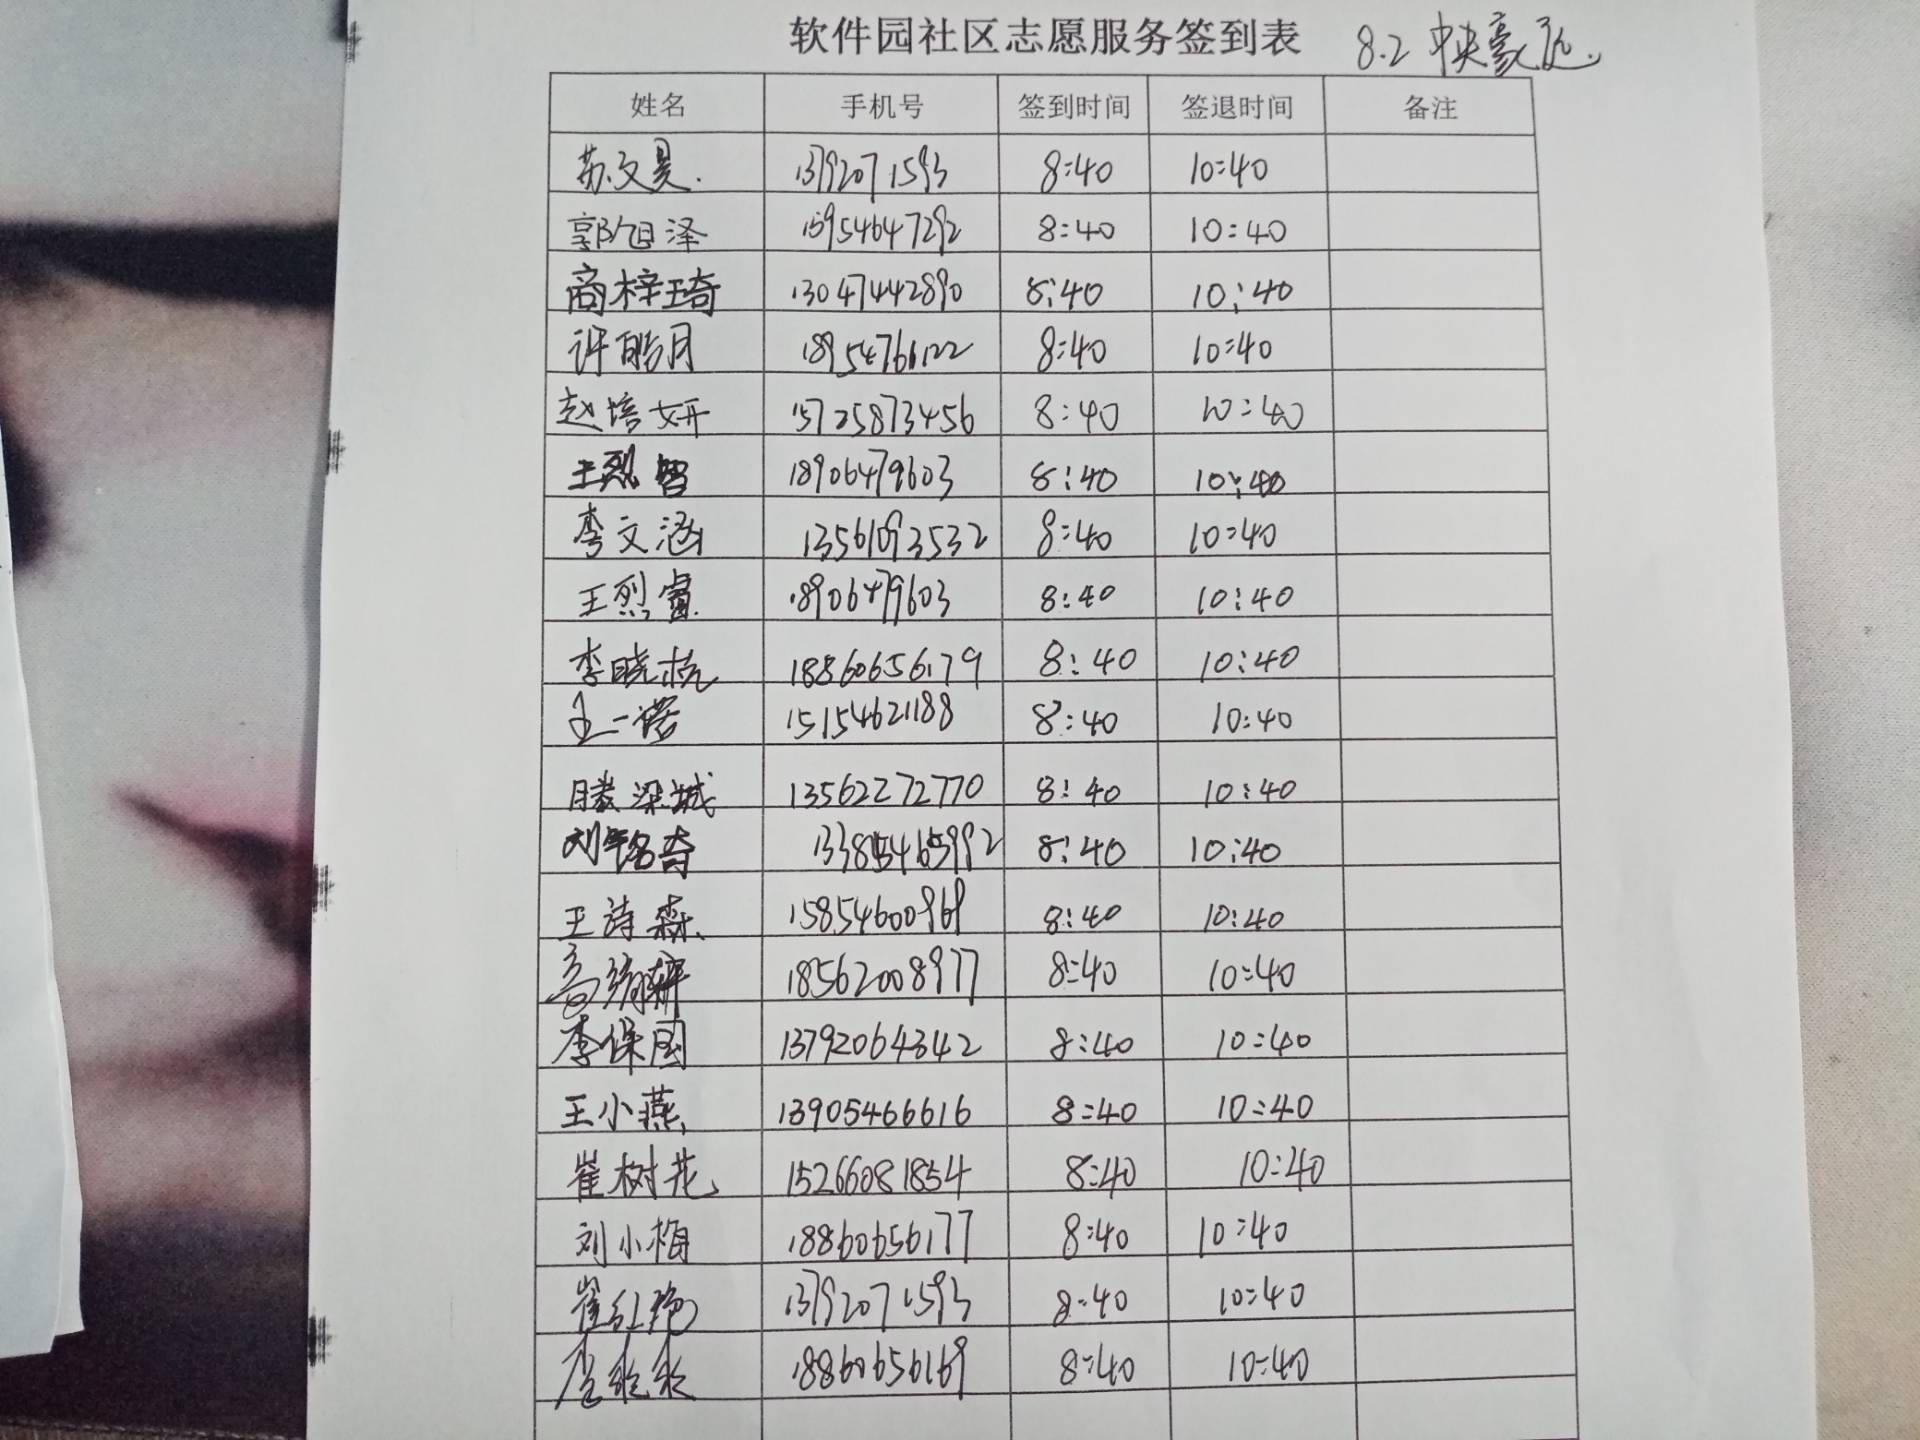 软件园社区志愿服务签到表 8.2 中央豪庭.
姓名 手机号 签到时间 签退时间 备注
苏文昊. 13792071593 8:40 10:40
郭旭泽 15954647292 8:40 10:40
商梓琦 13047442890 8:40 10:40
许皓月 18954766122 8:40 10:40
赵培妍 15725873456 8:40 10:40
王烈智 18906479603 8:40 10:40
李文涵 13561093532 8:40 10:40
王烈睿 18906479603 8:40 10:40
李晓杭 18860656179 8:40 10:40
王一诺 15154621188 8:40 10:40
滕梁城 13562272770 8:40 10:40
刘铭奇 8:40 10:40
王诗森 15854600969 8:40 10:40
高 18562008977 8:40 10:40
李保国 13792064342 8:40 10:40
王小燕 13905466616 8:40 10:40
崔树花 15266081854 8:40 10:40
刘小梅 18860656177 8:40 10:40
崔红艳 13792071593 8:40 10:40
18860656169 8:40 10:40